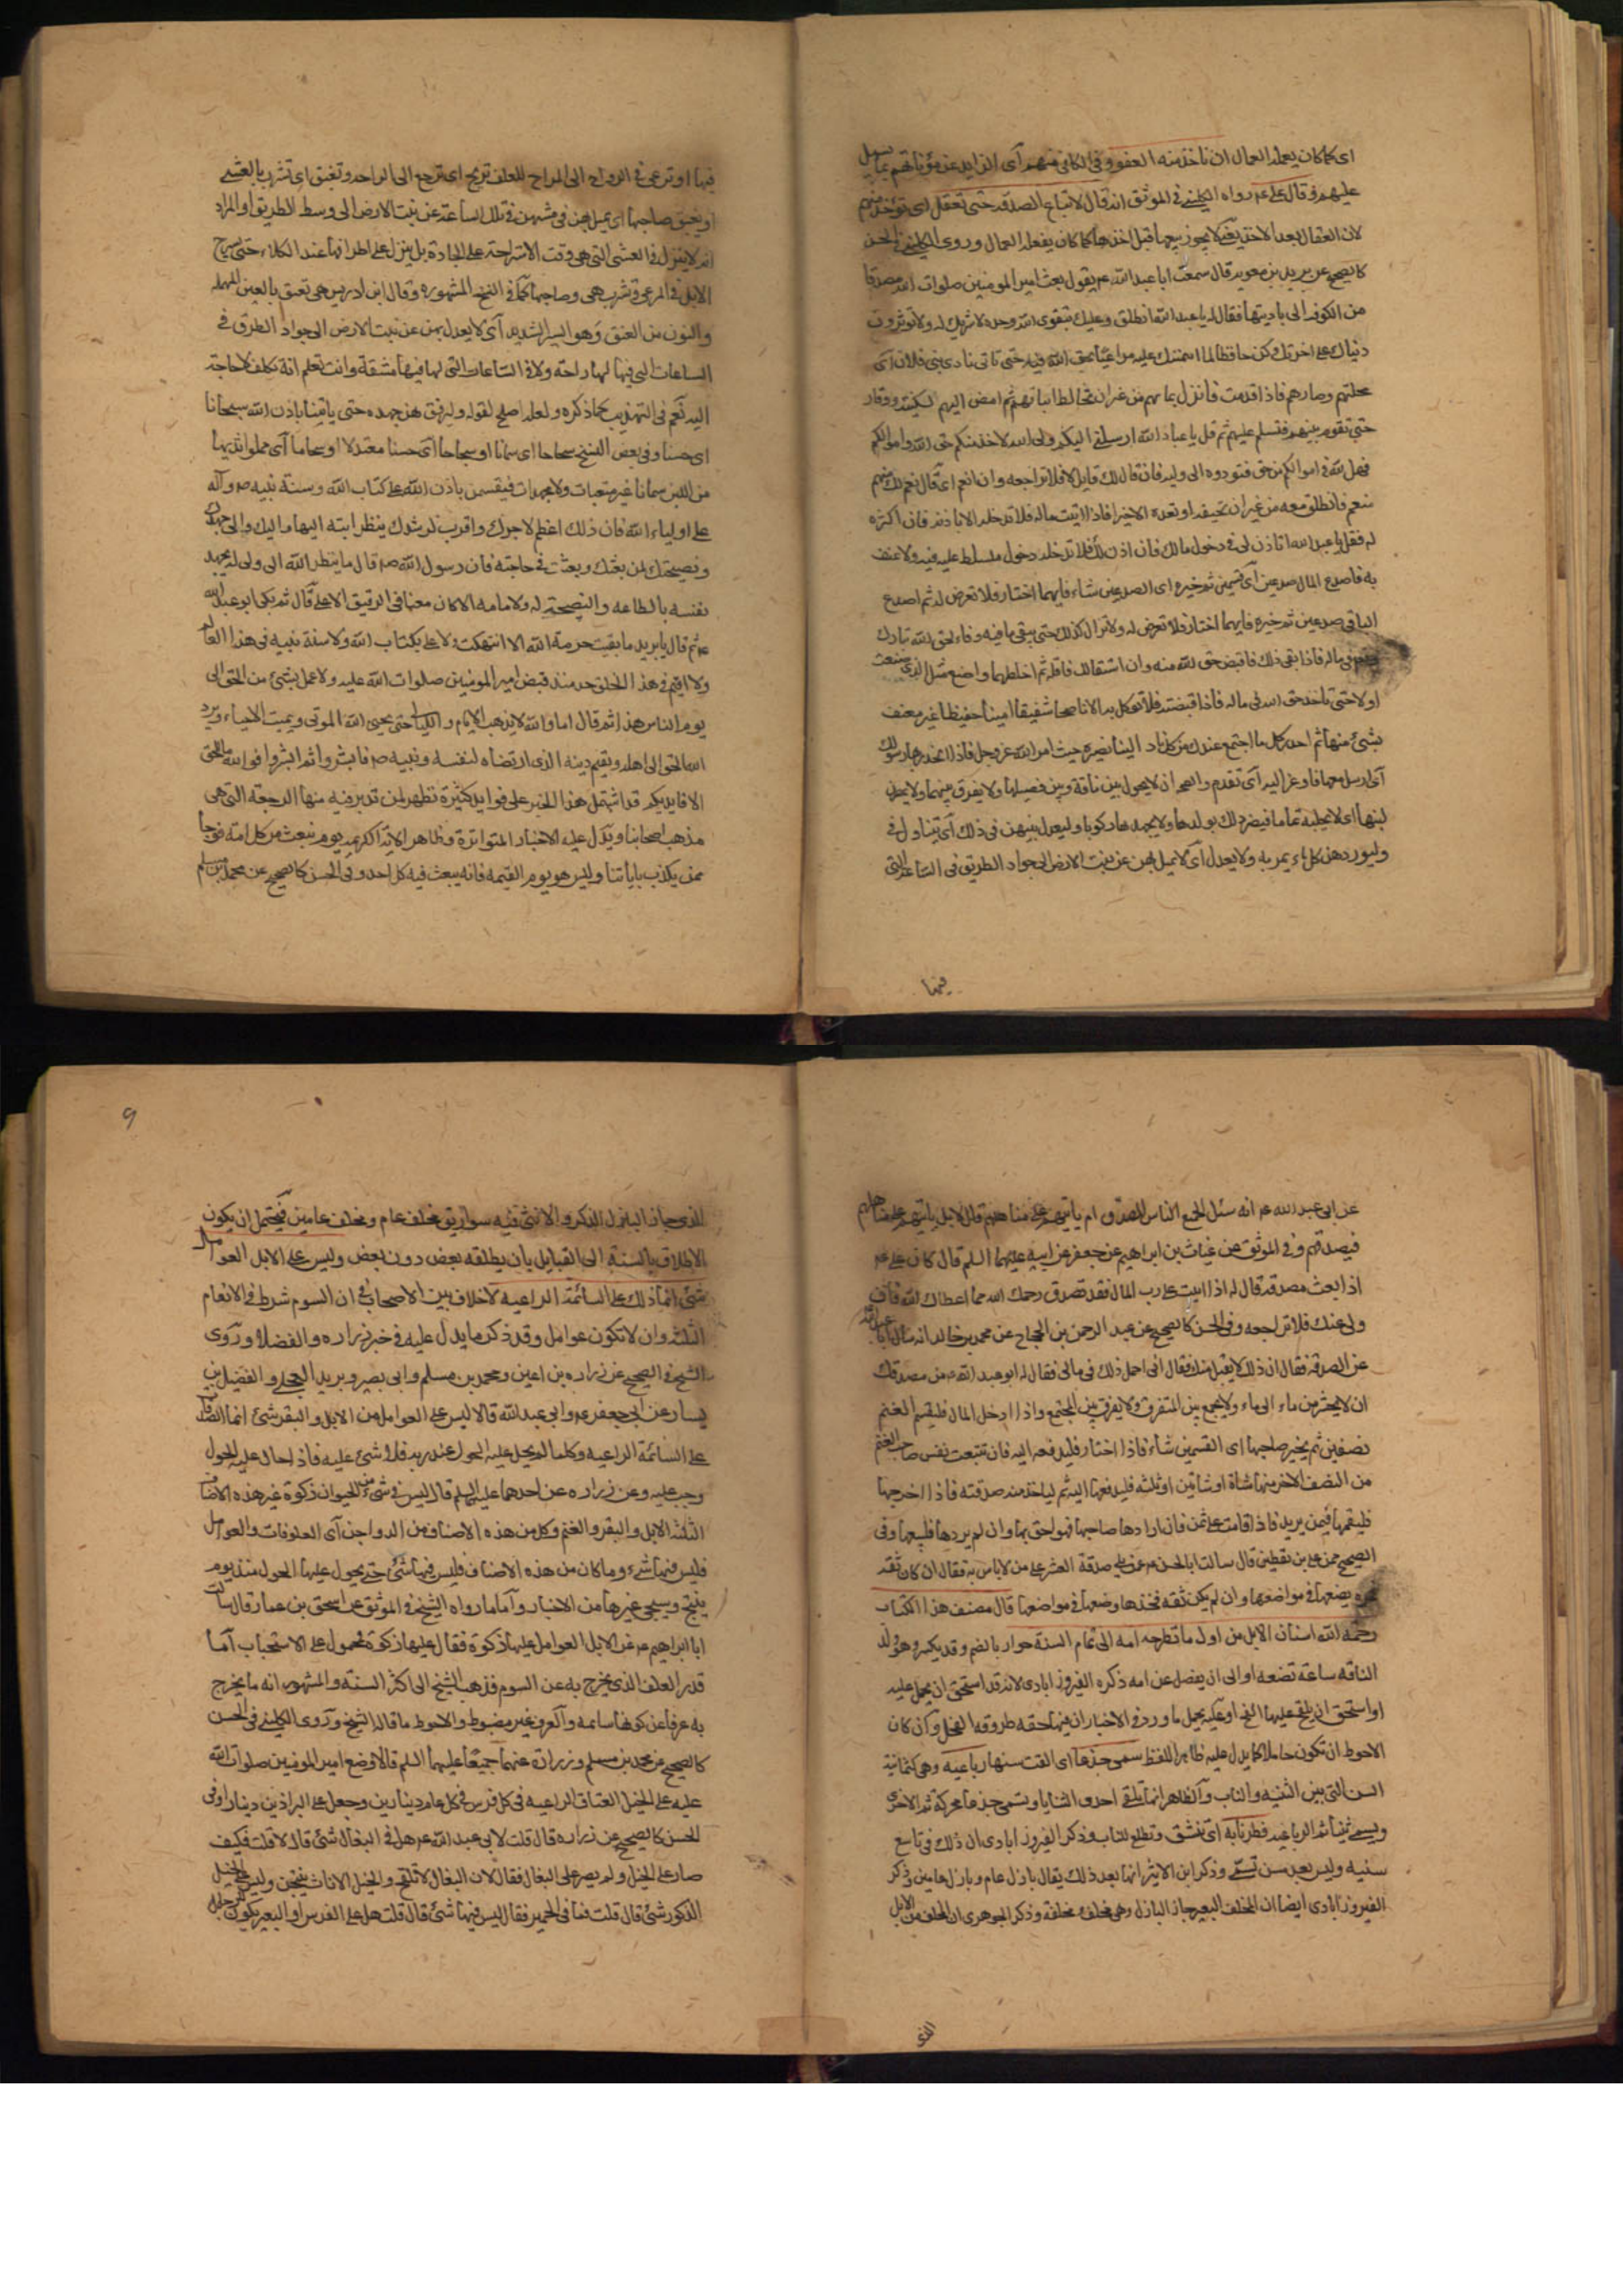 اى كما كان يعمله العمال ان ناخذ منه العفو وفى الكافى منهم اى الزايد عن مؤناتهم بما يسهل
عليهم وقال على عم رواه الكلينى فى الموثق انه قال لا تباع الصدقة حتى تعقل اى تؤخذ منهم
لان العقال بعد الاخذ يعنى لا يجوز بيعها قبل اخذها كما كان يفعله العمال وروى الكلينى فى الحسن
كالصحيح عن بريد بن معويه قال سمعت ابا عبد الله عم يقول بعث امير المومنين صلوات الله مصدقا
من الكوفه الى باديتها فقال له يا عبد الله انطلق وعليك بتقوى الله وحده لا شريك له ولا تؤثرون
دنياك على اخرتك وكن حافظا لما ائتمنتك عليه مراعيا بحق الله فيه حتى تاتى نادى بنى فلان اى
محلتهم وصارهم فاذا قدمت فانزل بمائهم من غير ان تخالط ابياتهم ثم امض اليهم بسكينة ووقار
حتى تقوم بينهم فتسلم عليهم ثم قل يا عباد الله ارسلنى اليكم ولى الله لاخذ منكم حق الله فى اموالكم
فهل لله فى اموالكم من حق فتودوه الى وليه فان قال لك قايل لا فلا تراجعه وان انعم اى قال نعم لك منهم
منعم فانطلق معه من غير ان تخيفه او تعده الا خيرا فاذا اتيت ماله فلا تدخله الا باذنه فان اكثره
له فقل يا عبد الله اتاذن لى فى دخول مالك فان اذن لك فلا تدخله دخول متسلط عليه فيه ولا عنف
به فاصدع المال صدعين اى قسمين ثم خيره اى الصدعين شاء فايهما اختار فلا تعرض له ثم اصدع
الباقى صدعين ثم خيره فايهما اختار فلا تعرض له ولا تزال كذلك حتى يبقى ما فيه وفاء لحق الله تبارك
فى ماله فاذا بقى ذلك فاقبض حق الله منه وان استقالك فاقله ثم اخلطهما واصنع مثل الذى صنعت
اولا حتى تاخذ حق الله فى ماله فاذا قبضته فلا توكل به الا ناصحا شفيقا امينا حفيظا غير معنف
بشئ منها ثم احدر كل ما اجتمع عندك من كل ناد الينا نصيره حيث امر الله عز وجل فاذا انحدر بها رسولك
اى ارسل معها فاوعز اليه اى تقدم وانصحه ان لا يحول بين ناقة وبين فصيلها ولا يفرق بينهما ولا يمصرن
لبنها اى لا يحلبه تماما فيضر ذلك بولدها ولا يجهدها ركوبا وليعدل بينهن فى ذلك اى يتناول فى
وليوردهن كل ماء يمر به ولا يعدل اى لا يميل بهن عن نبت الارض الى جواد الطريق فى الساعة التى
فيها
فيها او ترعى فى الرواح الى المراح للعلف تريح اى ترجع الى المراحد وتغبق اى تشرب بالعشى
او يغبق صاحبها اى يميل بهن فى مشيهن فى تلك الساعة عن نبت الارض الى وسط الطريق او المراد
انه لا ينزل فى العشى التى هى وقت الاستراحة على الجادة بل ينزل على اطرافها عند الكلاء حتى يسرح
الابل فى المرعى وتشرب هى وصاحبها كما فى النسخه المشهوره وقال ابن ادريس هى تعنق بالعين المهمله
والنون من العنق وهو السير الشديد اى لا يعدل بهن عن نبت الارض الى جواد الطرق فى
الساعات التى فيها لها راحة ولا فى الساعات التى لها فيها مشقة وانت تعلم انه تكلف لا حاجة
اليه نعم فى التهذيب كما ذكره ولعله اصلح لقوله وليرفق بهن جهده حتى ياتينا باذن الله سحاحا سمانا
اى حسنا وفى بعض النسخ سحاحا اى سمانا او سجاحا اى حسنا معتدلا او سحاما اى مملوا لديها
من اللبن سمانا غير متعبات ولا مجهدات فيقسمن باذن الله على كتاب الله وسنة نبيه ص وآله
على اولياء الله فان ذلك اعظم لاجرك واقرب لرشدك ينظر ابته اليها واليك والى جهدك
ونصيحتك لمن بعثك وبعثت فى حاجته فان رسول الله ص قال ما ينظر الله الى ولى له يجهد
نفسه بالطاعه والنصيحة له ولامامه الا كان معنا فى الرفيق الاعلى قال ثم بكى ابو عبد الله
عم ثم قال يا بريد ما بقيت حرمة الله الا انتهكت ولا عمل بكتاب الله ولا سنة نبيه فى هذا العالم
ولا اقيم فى هذا الخلق حد منذ قبض امير المومنين صلوات الله عليه ولا عمل بشئ من الحق الى
يوم الناس هذا ثم قال اما والله لا يذهب الايام والليالى حتى يحيى الله الموتى ويميت الاحياء ويرد
الله الحق الى اهله ويقيم دينه الذى ارتضاه لنفسه ونبيه ص فابشروا ثم ابشروا فو الله ما الحق
الا فايديكم قد اشتمل هذا الخبر على فوايد كثيرة تظهر لمن تدبر فيه منها الرجعة التى هى
مذهب اصحابنا ويدل عليه الاخبار المتواترة وظاهر الايه الكريمه يوم نبعث من كل امة فوجا
ممن يكذب باياتنا وليس هو يوم القيمه فانه يبعث فيه كل احد وفى الحسن كالصحيح عن محمد بن مسلم
عن ابى عبد الله عم انه سئل ايجمع الناس للمصدق ام ياتيهم على مناهلهم قال لا بل ياتيهم على مناهلهم
فيصدقهم وفى الموثق عن غياث بن ابراهيم عن جعفر عن ابيه عليهما السلم قال كان على عم
اذا بعث مصدقه قال له اذا اتيت على رب المال فقل تصدق رحمك الله مما اعطاك الله فان
ولى عنك فلا تراجعه وفى الحسن كالصحيح عن عبد الرحمن بن الحجاج عن محمد بن خالد انه سال ابا عبد الله
عن الصدقه فقال ان ذلك لا يقبل منك فقال انى احمل ذلك فى مالى فقال له ابو عبد الله عم من مصدقك
ان لا يحشر من ماء الى ماء ولا يجمع بين المتفرق ولا يفرق بين المجتمع واذا دخل المال فليقسم الغنم
نصفين ثم يخير صاحبها اى القسمين شاء فاذا اختار فليدفعه اليه فان تتبعت نفس صاحب الغنم
من النصف الاخر منها شاة او شاتين او ثلثه فليدفعها اليه ثم لياخذ منه صدقته فاذا اخرجها
فليقمها فيمن يريد فاذا قامت على ثمن فان ارادها صاحبها فهو احق بها وان لم يردها فليبعها وفى
الصحيح عن على بن يقطين قال سالت ابا الحسن عم عمن يلى صدقة العشر على من لا باس به فقال ان كان ثقه
يضعها فى مواضعها وان لم يكن ثقه فخذها وضعها فى مواضعها قال مصنف هذا الكتاب
رحمه الله اسنان الابل من اول ما تطرحه امه الى تمام السنة حوار بالضم وقد يكسر وهو ولد
الناقه ساعة تضعه او الى ان يفصل عن امه ذكره الفيروزابادى لانه قد استحق ان يحمل عليه
او استحق ان يلقح عليها الفحل وعليه يحمل ما ورد فى الاخبار ان فيها حقه طروقه الفحل وان كان
الاحوط ان تكون حاملا كما يدل عليه ظاهر اللفظ سمى جذعا اى القت سنها رباعيه وهى كثمانية
السن التى بين الثنيه والناب والظاهر انها تلقى احدى الثنايا ويسمى جذعا محركة ثم الاخرى
ويسمى ثنيا ثم الرباعيه فطر نابه اى تنشق وتطلع للناب وذكر الفيروزابادى ان ذلك فى تاسع
سنيه وليس بعد سن تسمى وذكر ابن الاثير انها بعد ذلك يقال بازل عام وبازل عامين وذكر
الفيروزابادى ايضا ان المخلف البعير جاز البازل وهى مخلف ومخلفة وذكر الجوهرى ان المخلف من الابل
الذى
٩
الذى جاز البازل الذكر والانثى فيه سواء يق مخلف عام ومخلف عامين فيحتمل ان يكون
الاطلاق بالنسبة الى القبايل بان يطلقه بعض دون بعض وليس على الابل العوامل
شئ انما ذلك على السائمة الراعيه لا خلاف بين الاصحاب فى ان السوم شرط فى الانعام
الثلثه وان لا تكون عوامل وقد ذكر ما يدل عليه فى خبر زراره والفضلاء وروى
الشيخ فى الصحيح عن زراره بن اعين ومحمد بن مسلم وابى بصير وبريد العجلى والفضيل بن
يسار عن ابى جعفر عم وابى عبد الله قالا ليس على العوامل من الابل والبقر شئ انما الصدقات
على السائمة الراعيه وكلما لم يحل عليه الحول عند ربه فلا شئ عليه فاذا حال عليه الحول
وجب عليه وعن زراره عن احدهما عليهما السلم قال ليس فى شئ من الحيوان زكوة غير هذه الاصناف
الثلثه الابل والبقر والغنم وكل من هذه الاصناف من الدواجن اى العلوفات والعوامل
فليس فيها شئ وما كان من هذه الاصناف فليس فيها شئ حتى يحول عليها الحول منذ يوم
ينتج وسيجئ غيرها من الاخبار واما ما رواه الشيخ فى الموثق عن اسحق بن عمار قال سالت
ابا ابراهيم عم عن الابل العوامل عليها زكوة فقال عليها زكوة فمحمول على الاستحباب اما
قدر العلف الذى يخرج به عن السوم فذهب الشيخ الى اكثر السنة والمشهور انه ما يخرج
به عرفا عن كونها سائمه والعرف غير مضبوط والاحوط ما قاله الشيخ وروى الكلينى فى الحسن
كالصحيح عن محمد بن مسلم وزرارة عنهما جميعا عليهما السلم قالا وضع امير المومنين صلوات الله
عليه على الخيل العتاق الراعيه فى كل فرس فى كل عام دينارين وجعل على البراذين دينارا وفى
الحسن كالصحيح عن زراره قال قلت لابى عبد الله عم هل فى البغال شئ قال لا قلت فكيف
صار على الخيل ولم يصر على البغال فقال لان البغال لا تلقح والخيل الاناث ينتجن وليس على الخيل
الذكور شئ قال قلت فما فى الحمير فقال ليس فيها شئ قال قلت هل على الفرس او البعير يكون للرجل